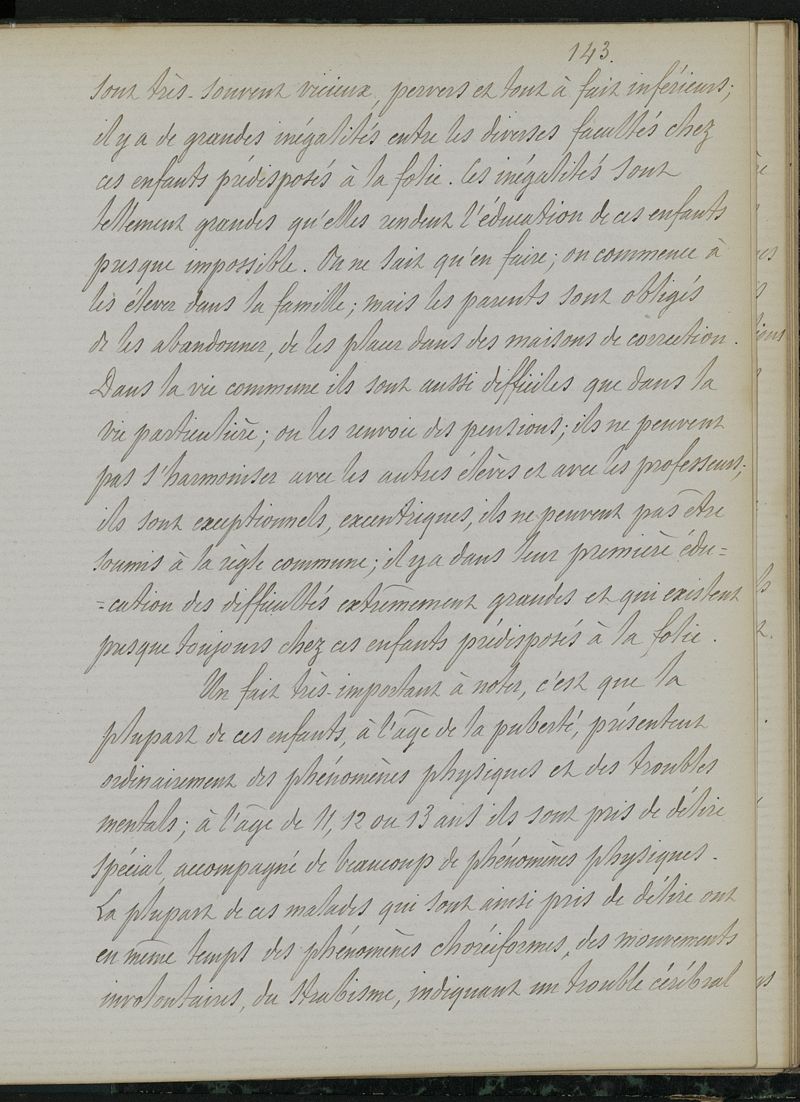 143.
sont très-souvent vicieux, pervers et tout à fait inférieurs;
il y a de grandes inégalités entre les diverses facultés chez
ces enfants prédisposés à la folie. Ces inégalités sont
tellement grandes qu'elles rendent l'éducation de ces enfants
presque impossible. On ne sait qu'en faire; on commence à
les élever dans la famille; mais les parents sont obligés
de les abandonner, de les placer dans des maisons de correction.
Dans la vie commune ils sont aussi difficiles que dans la
vie particulière; on les renvoie des pensions; ils ne peuvent
pas s'harmoniser avec les autres élèves et avec les professeurs;
ils sont exceptionnels, excentriques, ils ne peuvent pas être
soumis à la règle commune; il y a dans leur première édu=
=cation des difficultés extrêmement grandes et qui existent
presque toujours chez ces enfants prédisposés à la folie.
Un fait très-important à noter, c'est que la
plupart de ces enfants, à l'âge de la puberté, présentent
ordinairement des phénomènes physiques et des troubles
mentals; à l'âge de 11, 12 ou 13 ans ils sont pris de délire
spécial, accompagné de beaucoup de phénomènes physiques.
La plupart de ces malades qui sont ainsi pris de délire ont
en même temps des phénomènes choréiformes, des mouvements
involontaires, du strabisme, indiquant un trouble cérébral